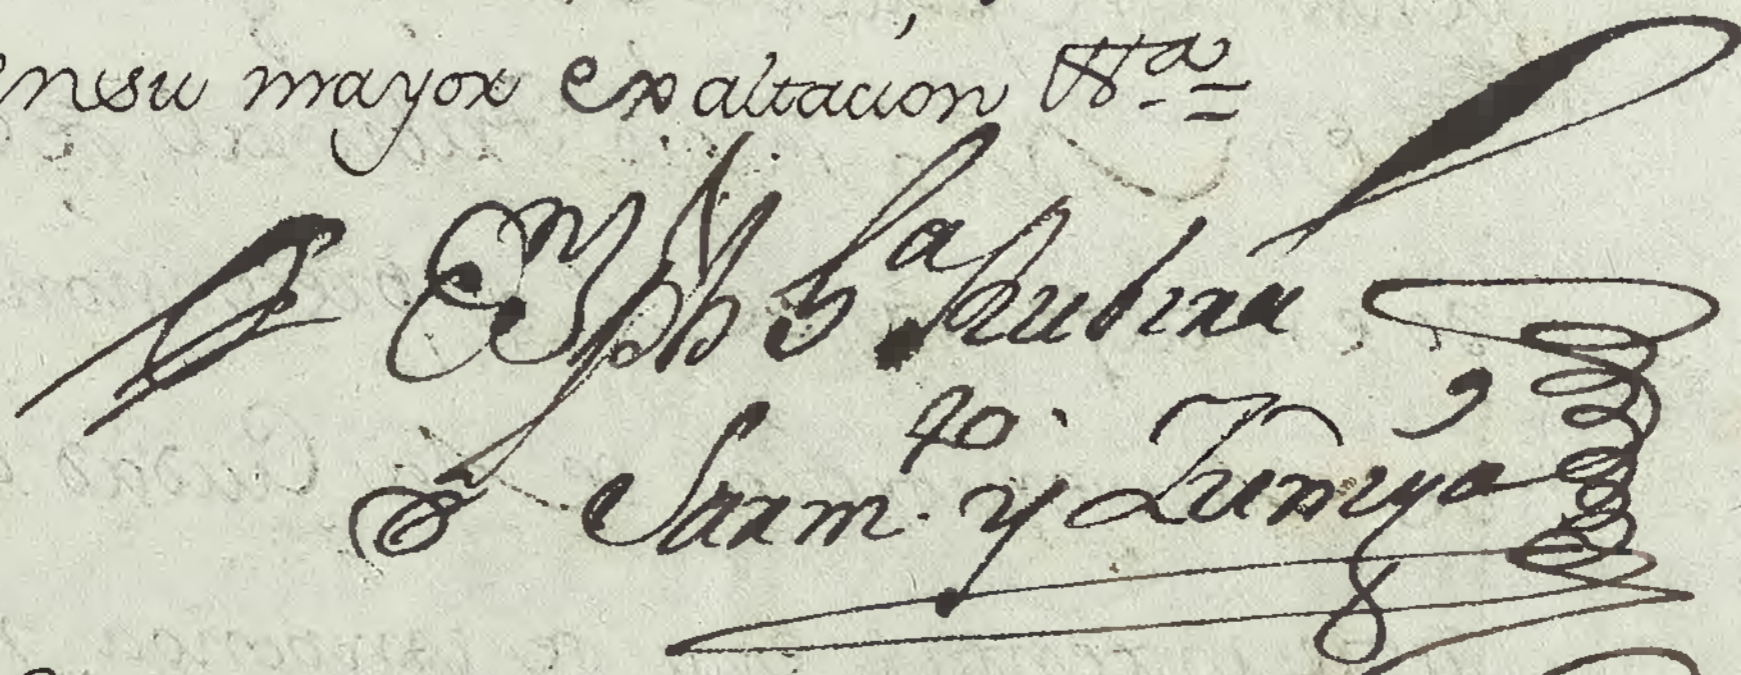 en su mayor exaltacion V.ª=
Joseph G.ª Rubira
Sarm.to y Zuñiga